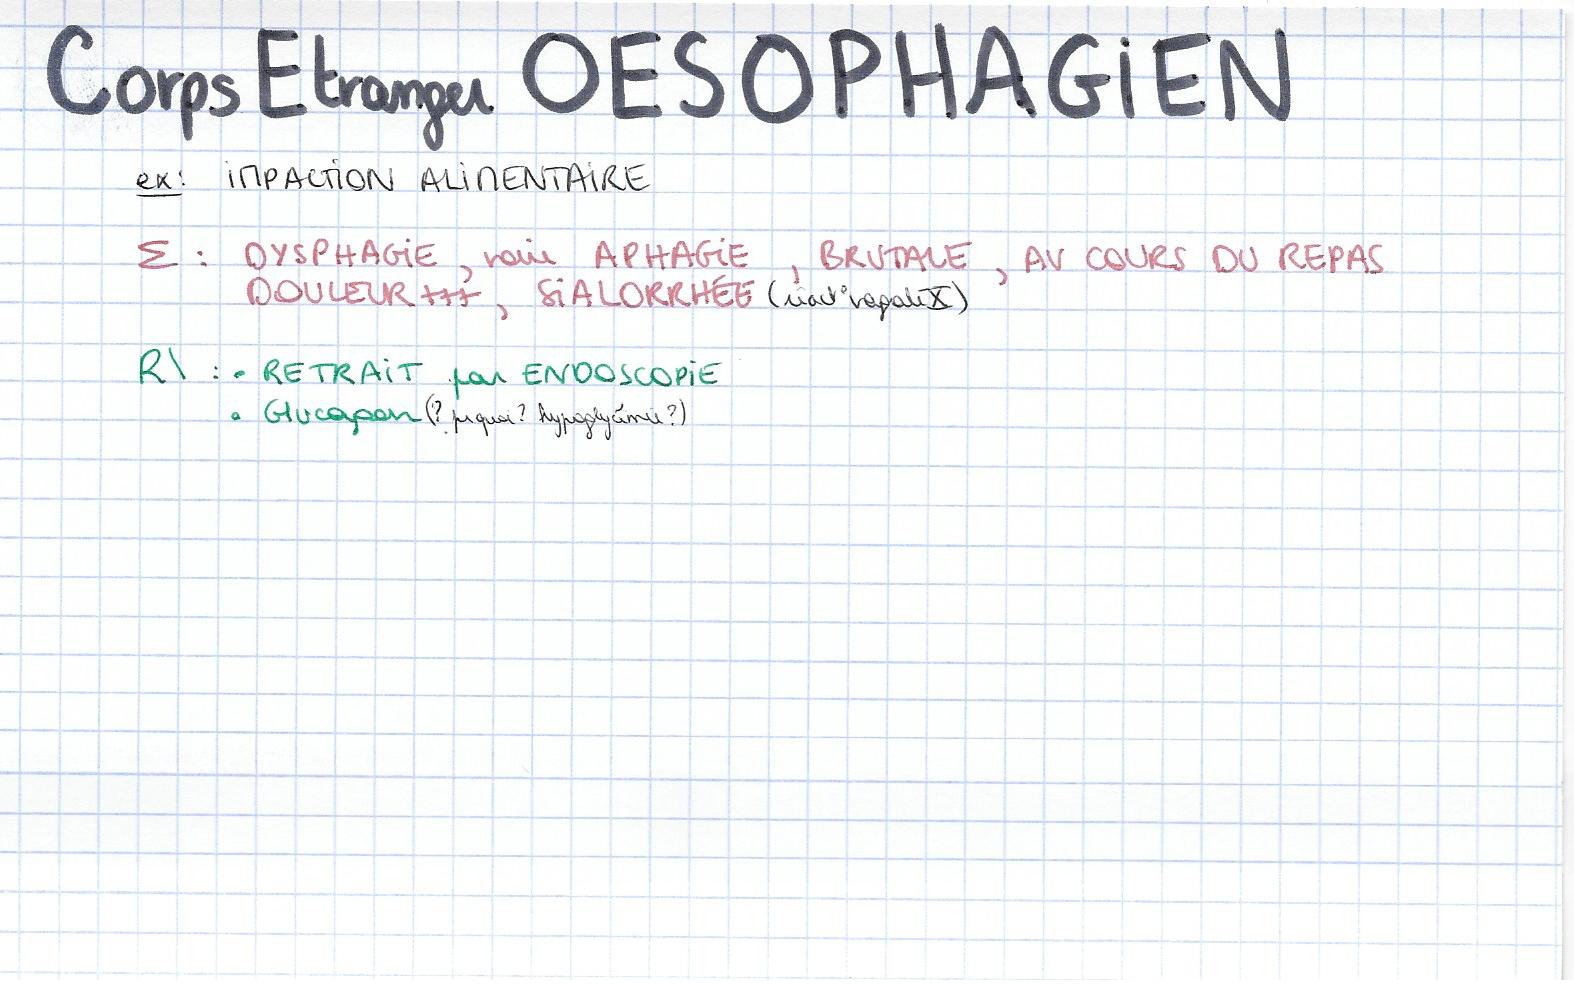 Corps Etranger OESOPHAGIEN
ex: IMPACTION ALIMENTAIRE
Σ : DYSPHAGIE, voire APHAGIE, BRUTALE, AU COURS DU REPAS
DOULEUR +++, SIALORRHÉE (réact° vagale X)
R\ : • RETRAIT par ENDOSCOPIE
• Glucagon (? pquoi? hypoglycémie?)